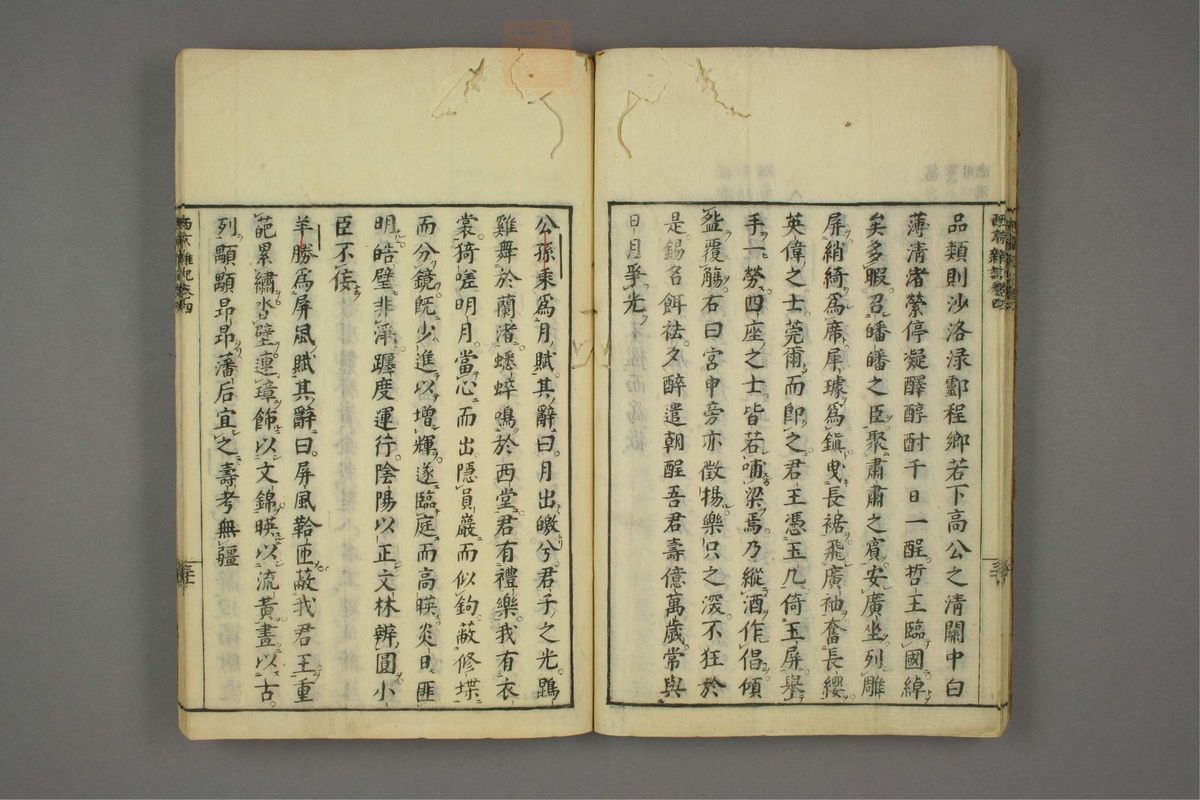 品類則沙洛渌酃程鄉若下高公之清關中白
薄清渚縈停凝醳醇酎千日一醒哲王臨國綽
矣多暇召皤皤之臣聚肅肅之賓安廣坐列雕
屏綃綺為席犀璩為鎮曳長裾飛廣袖奮長纓
英偉之士莞爾而即之君王憑玉几倚玉屏舉
手一勞四座之士皆若哺梁焉乃縱酒作倡傾
盌覆觴右曰宮申旁亦徵揚樂只之深不狂於
是錫名餌袪夕醉遣朝醒吾君壽億萬歲常與
日月爭光
公孫乘為月賦其辭曰月出皦兮君子之光鵾
雞舞於蘭渚蟋蟀鳴於西堂君有禮樂我有衣
裳猗嗟明月當心而出隱員巖而似鉤蔽修堞
而分鏡旣少進以增輝遂臨庭而高暎炎日匪
明皓璧非淨躔度運行陰陽以正文林辨圓小
臣不佞
羊勝為屏風賦其辭曰屏風鞈匝蔽我君王重
葩累繡沓璧連璋飾以文錦暎以流黃畫以古
列顒顒昂昂藩后宜之壽考無疆